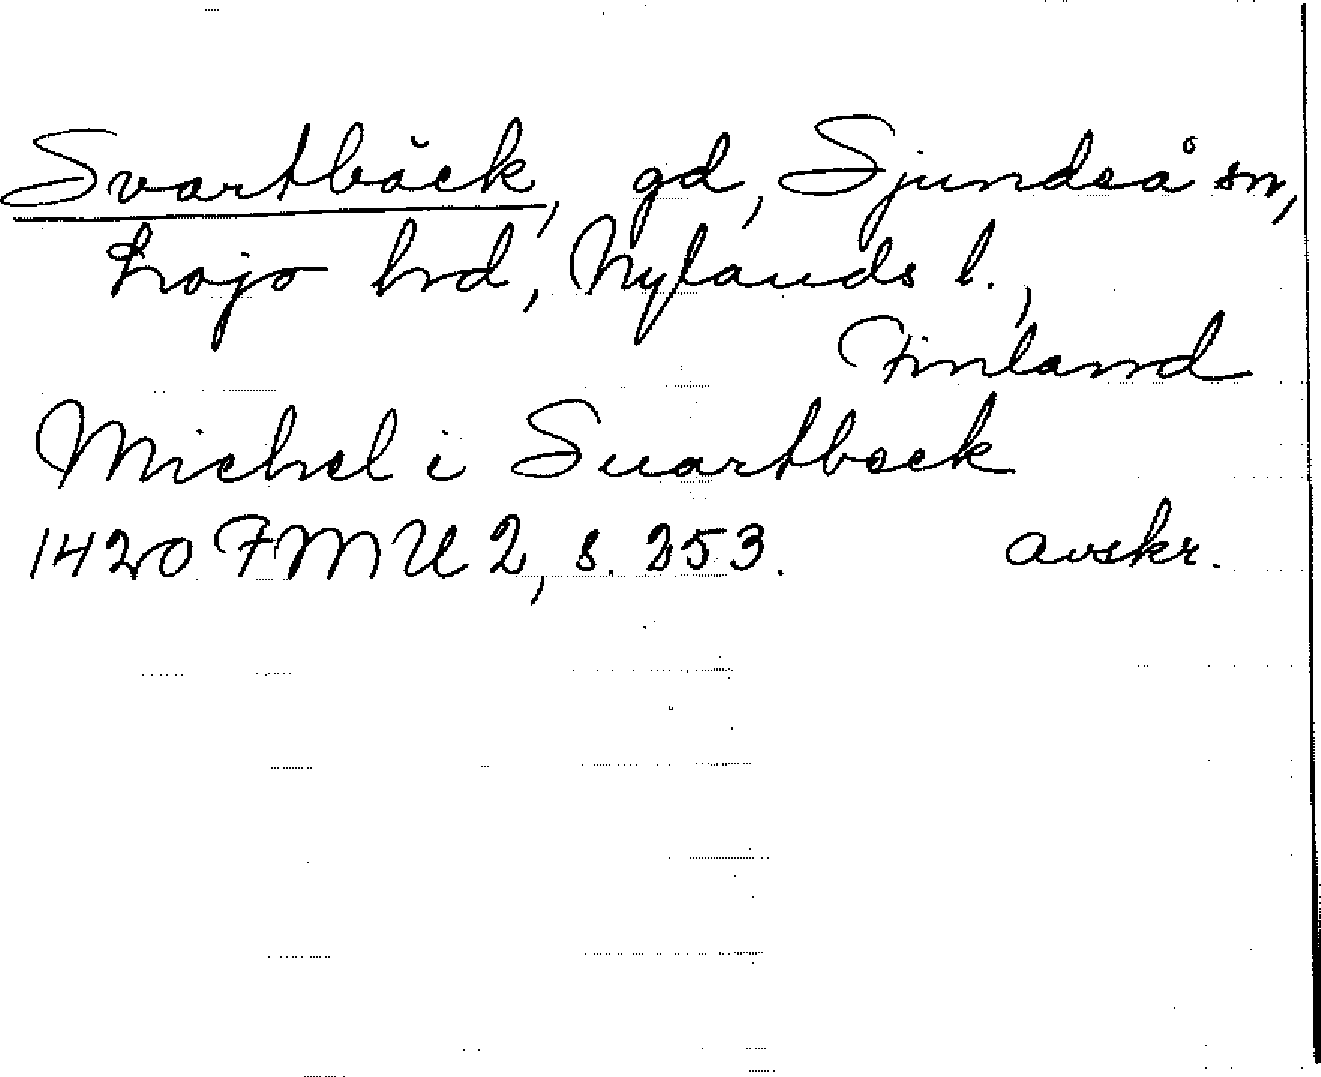 Svartbäck, gd, Sjundeå sn,
Lojo hrd, Nylands l.,
Finland
Michel i Suartbaek
1420 FMU 2, s. 253. avskr.